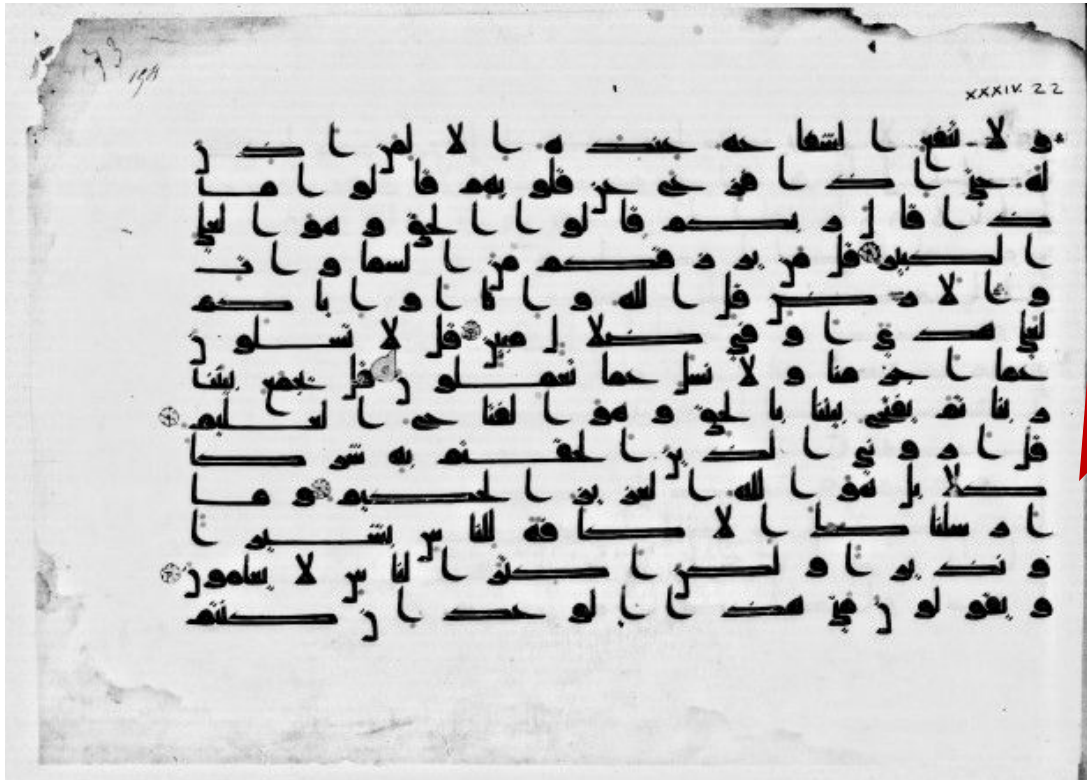 XXXIV. 22
و لا تنفع الشفاعة عنده الا لمن اذن
له حتى اذا فزع عن قلوبهم قالوا ما
ذا قال ربكم قالوا الحق و هو العلي
الكبير قل من يرزقكم من السماوات
و الارض قل الله و انا او اياكم
لعلى هدى او في ضلال مبين قل لا تسلون
عما اجرمنا و لا نسل عما تعملون قل يجمع بيننا
ربنا ثم يفتح بيننا بالحق و هو الفتاح العليم
قل اروني الذين الحقتم به شركا
كلا بل هو الله العزيز الحكيم و ما
ارسلناك الا كافة للناس بشيرا
و نذيرا و لكن اكثر الناس لا يعلمون
و يقولون متى هذا الوعد ان كنتم